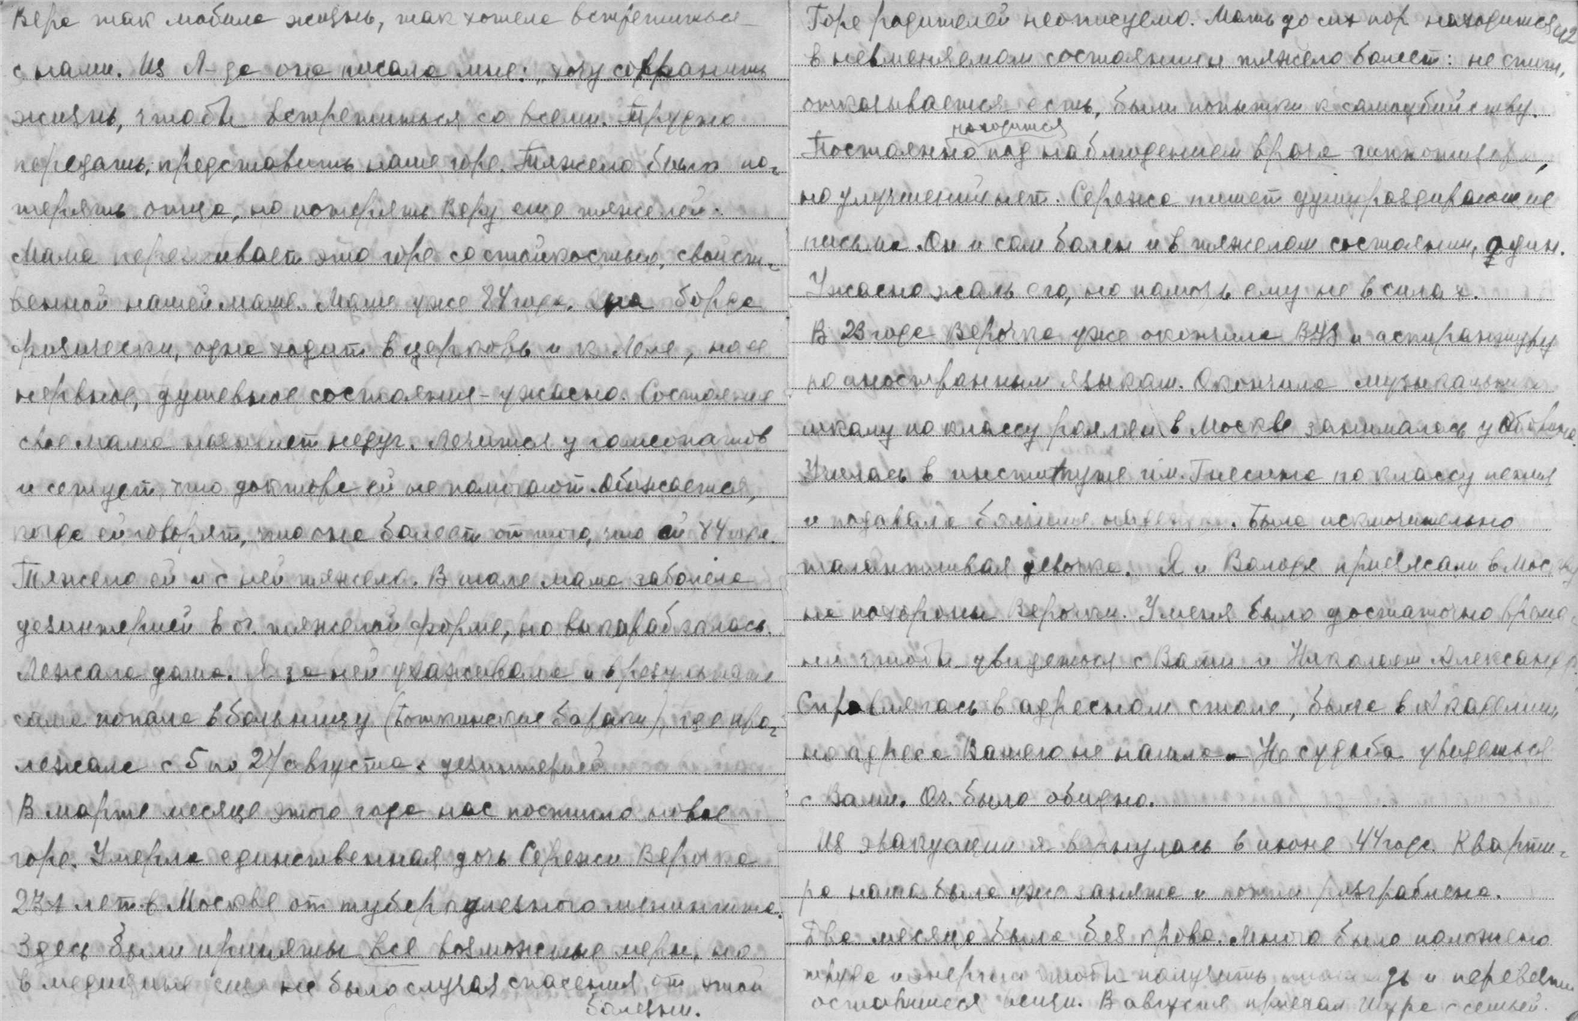 Вера так любила жизнь, так хотела встретиться
с нами. Из Л-да она писала мне: "хочу сохранить
жизнь, чтобы встретиться со всеми. Трудно
передать, представить наше горе. Тяжело было по-
терять отца, но потерять Веру еще тяжелей.
Мама переживает это горе со стойкостью, свойст-
венной нашей маме. Маме уже 84 года. Она бодра
физически, одна ходит в церковь и к Леле, но ее
нервное, душевное состояние - ужасно. Состояние
свое мама называет недуг. Лечится у гомеопатов
и сетует, что доктора ей не помогают. Обижается,
когда ей говорят, что она болеет от того, что ей 84 года.
Тяжело ей и с ней тяжело. В мама заболела
дезинтерией в оч. тяжелой форме, но выкарабкалась.
Лежала дома. Я за ней ухаживала и в результате
сама попала в больницу (Боткинские бараки), где про-
лежала с 5 по 27 августа с дезинтерией
В марте месяце этого года нас постигло новое
горе. Умерла единственная дочь Сережи Верочка
лет в Москве от туберкулезного менингита.
Здесь были приняты все возможные меры, но
в медицине еще не было случая спасения от этой
болезни.
42
Горе родителей неописуемо. Мать до сих пор находится
в невменяемом состоянии и тяжело болеет: не спит,
отказывается есть, были попытки к самоубийству.
находится
Постоянно под наблюдением врача
но улучшений нет. Сережа пишет душураздирающие
письма. Он и сам болен и в тяжелом состоянии, один.
Ужасно жаль его, но помочь ему не в силах.
В 23 года Верочка уже окончила ВУЗ и аспирантуру
по иностранным языкам. Окончила музыкальную
школу по классу рояля и в Москве занималась у
Училась в институте им. Гнесина по классу пения
и подавала большие надежды. Была исключительно
талантливая девочка. Я и Володя приезжали в Москву
на похороны Верочки. У меня было достаточно време-
ни чтобы увидеться с Вами и Николаем Александр.
Справлялась в адресном столе, была в Академии,
но адреса Вашего не нашла. Не судьба увидеться
с Вами. Оч. было обидно.
Из эвакуации я вернулась в июне 44 года. Кварти-
ра наша была уже занята и почти разграблена.
Два месяца была без крова. Много было положено
труда и энергии чтобы получить и перевезти
оставшиеся вещи. В августе приехал Шура с семьей.